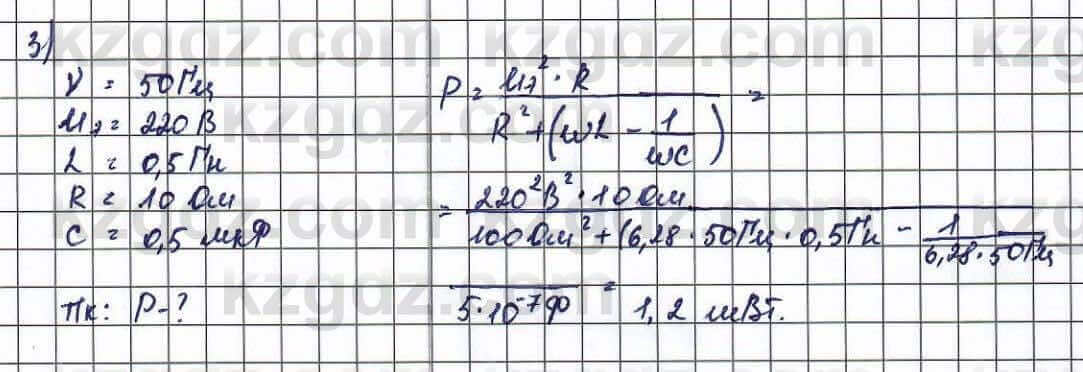 3)
ν = 50 Гц
Uэ = 220 В
L = 0,5 Гн
R = 10 Ом
C = 0,5 мкФ
Тк: P-?
P = Uэ² · R / R² + (ωL - 1/ωC) =
= 220² В² · 10 Ом / 100 Ом² + (6,28 · 50 Гц · 0,5 Гн - 1 / 6,28 · 50 Гц
5 · 10⁻⁷ Ф = 1,2 мВт.
kzgdz.com